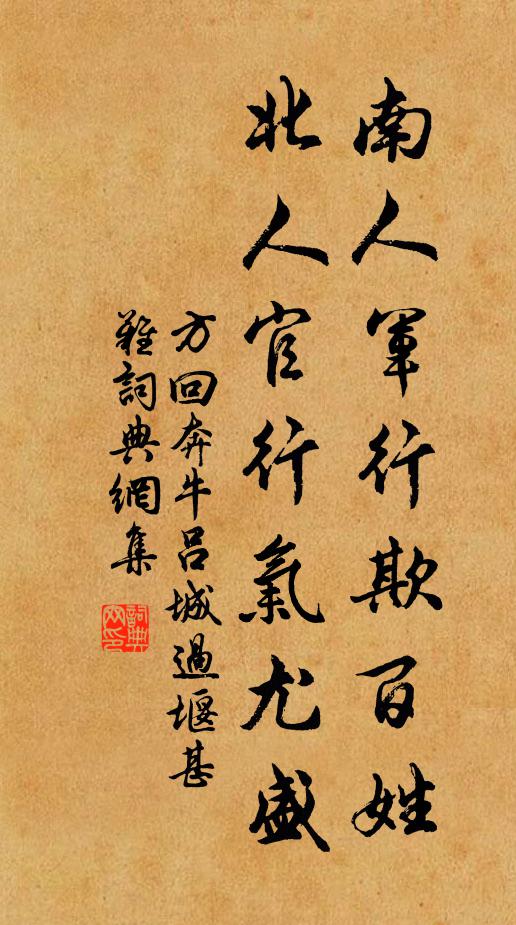 南人軍行欺百姓
北人官行氣尤盛
方回奔牛呂城過堰甚
難詞典網集
詞典網印